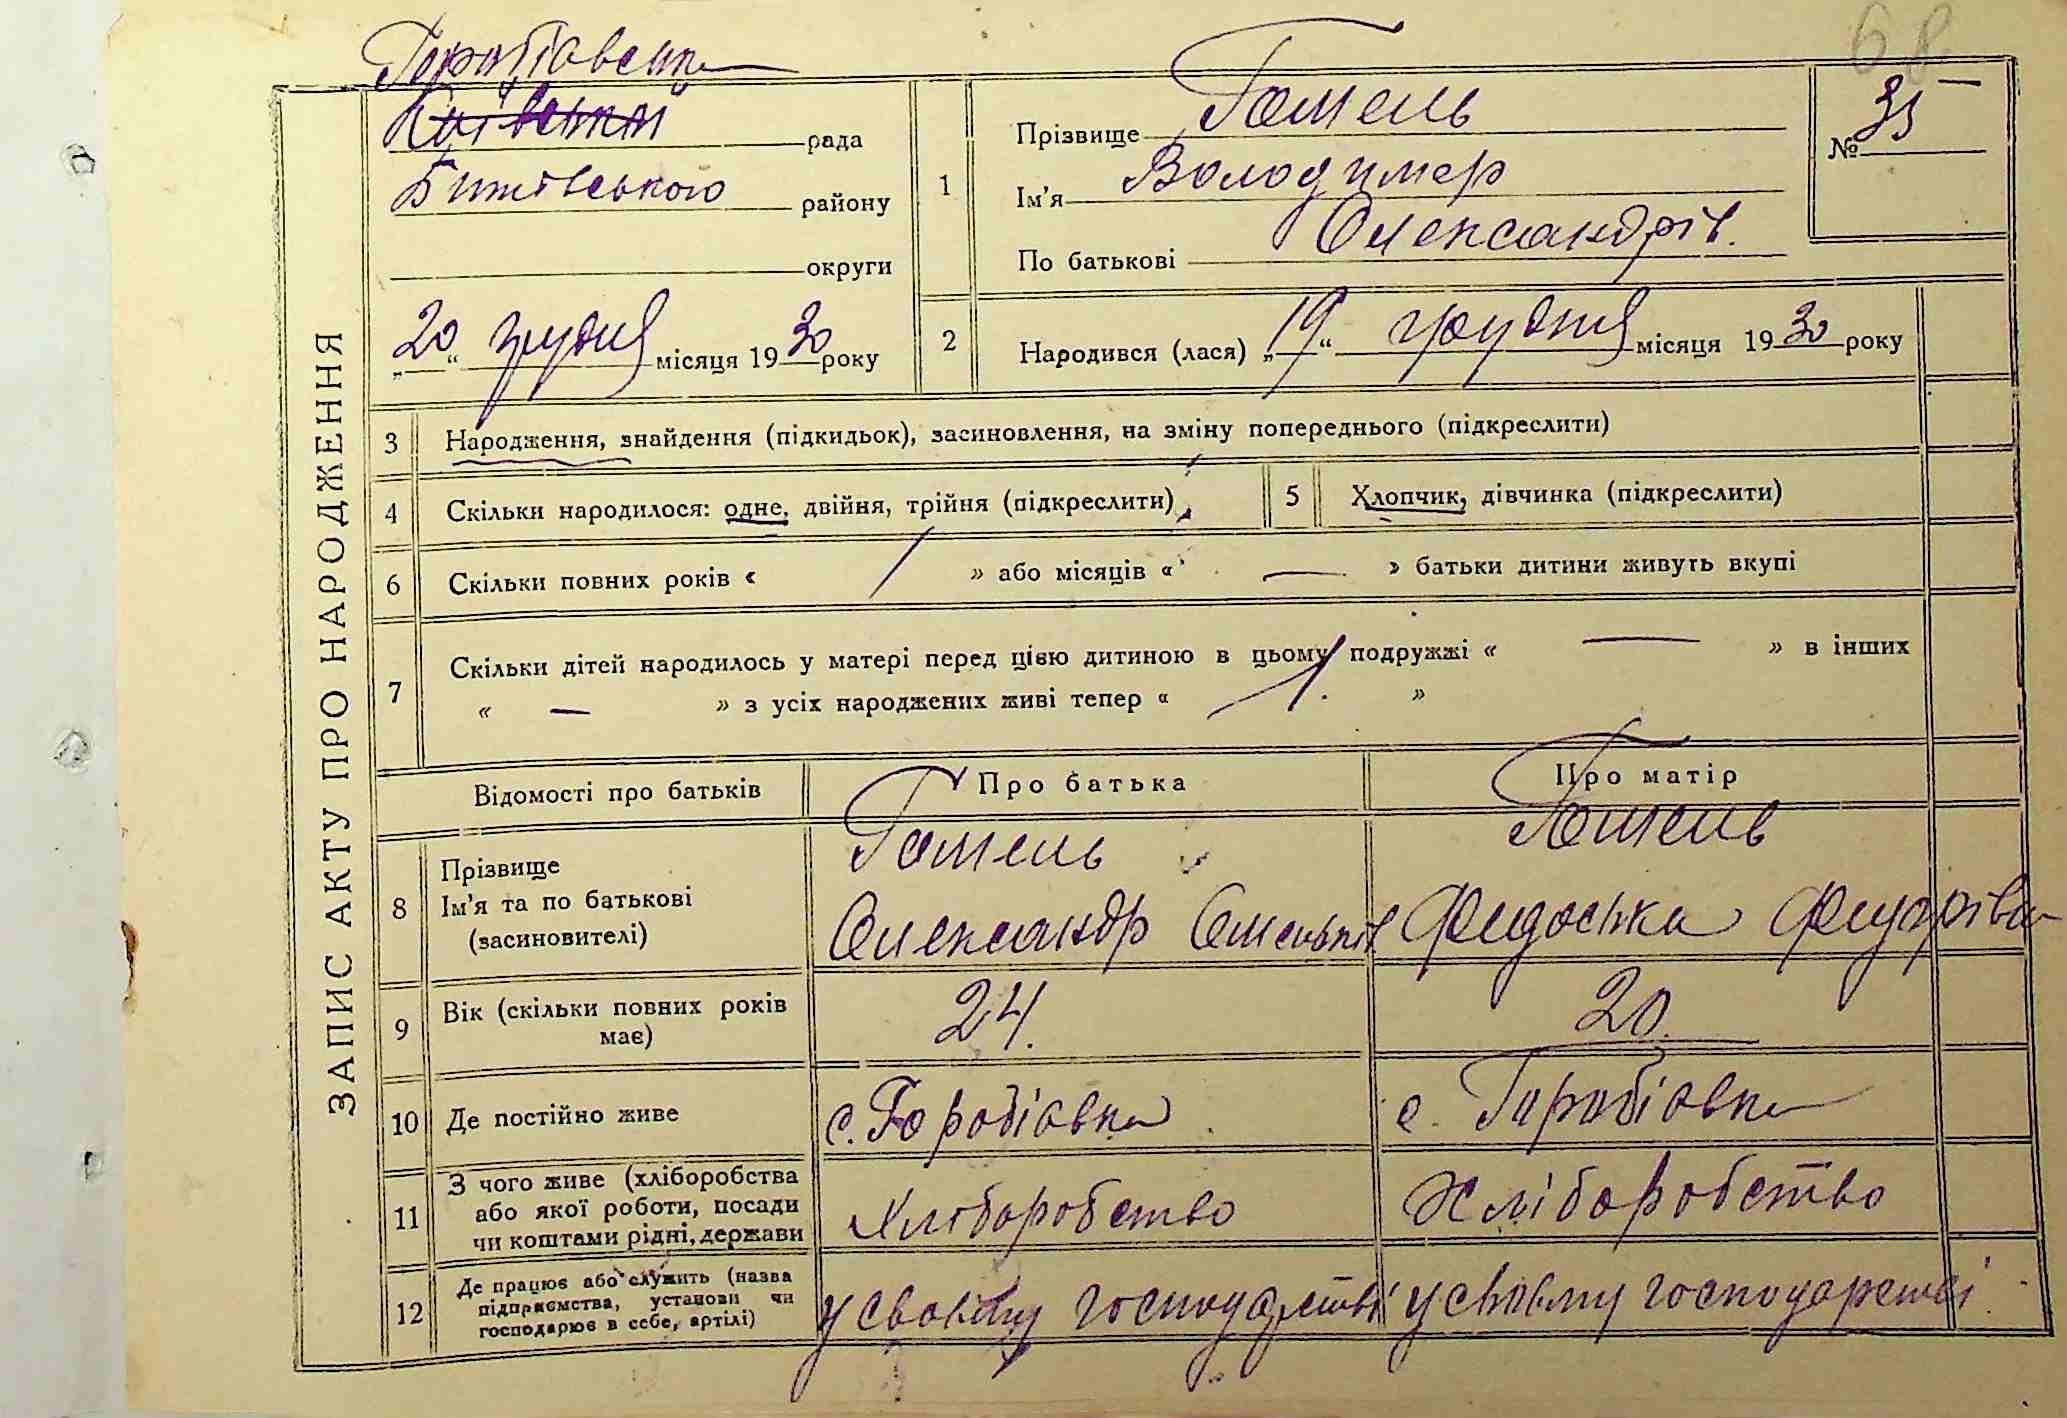 68
ЗАПИС АКТУ ПРО НАРОДЖЕННЯ
рада
району
округи
„20“ грудня місяця 1930 року
№ 35
1
Прізвище Гомель
Ім'я Володимер
По батькові Олександрів.
2 Народився (лася) „19“ грудня місяця 1930 року
3 Народження, знайдення (підкидьок), засиновлення, на зміну попереднього (підкреслити)
4 Скільки народилося: одне, двійня, трійня (підкреслити)
5 Хлопчик, дівчинка (підкреслити)
6 Скільки повних років « / » або місяців « — » батьки дитини живуть вкупі
7 Скільки дітей народилось у матері перед цією дитиною в цьому подружжі « — » в інших
« — » з усіх народжених живі тепер « 1. »
Відомості про батьків Про батька Про матір
8
Прізвище
Ім'я та по батькові
(засиновителі)
Гомель
Олександр
Гомель
Федоська
9
Вік (скільки повних років
має)
24.
20.
10 Де постійно живе
с. Горобіовка
с. Горобіовка
11
З чого живе (хліборобства
або якої роботи, посади
чи коштами рідні, держави
Хліборобство
Хліборобство
12
Де працює або служить (назва
підприємства, установи чи
господарює в себе, артілі)
у своєму господарстві
у своєму господарстві